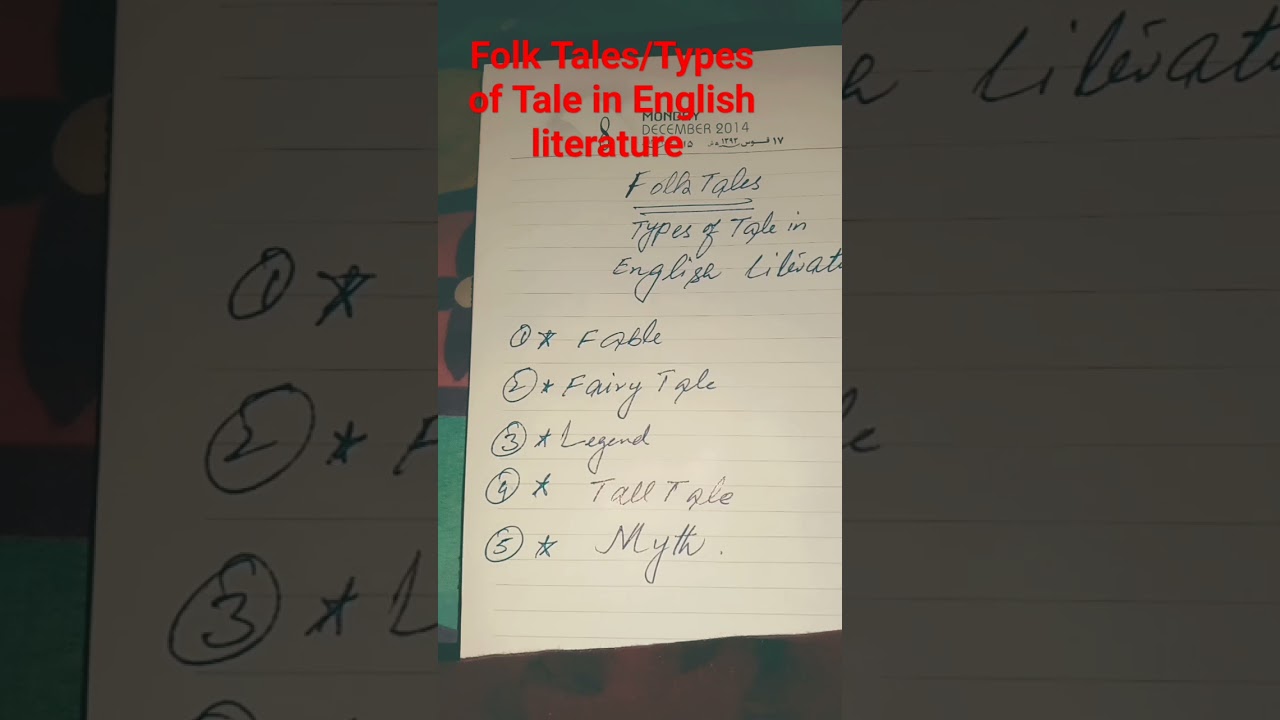 Folk Tales/Types
of Tale in English
literature
8
MONDAY
DECEMBER 2014
١٧ قـــوس ١٣٩٣
Folk Tales
Types of Tale in
English Literatu
① * Fable
② * Fairy Tale
③ * Legend
④ * Tall Tale
⑤ * Myth.